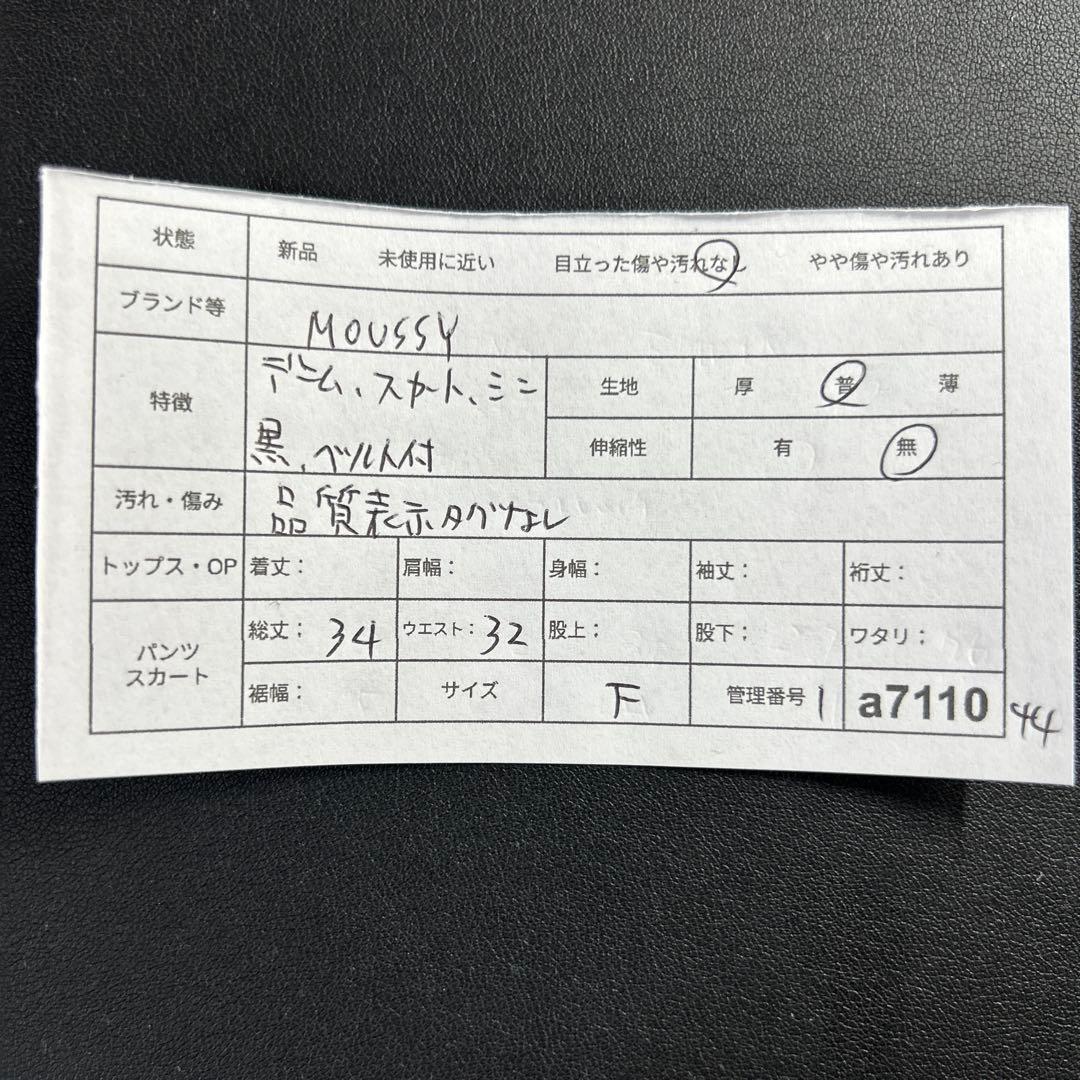 状態 新品 未使用に近い 目立った傷や汚れなし やや傷や汚れあり
ブランド等 MOUSSY
特徴 デニム、スカート、ミニ
黒、ベルト付
生地 厚 普 薄
伸縮性 有 無
汚れ・傷み 品質表示タグなし
トップス・OP 着丈： 肩幅： 身幅： 袖丈： 裄丈：
パンツ
スカート
総丈： 34 ウエスト： 32 股上： 股下： ワタリ：
裾幅： サイズ 下 管理番号 1 a7110 44